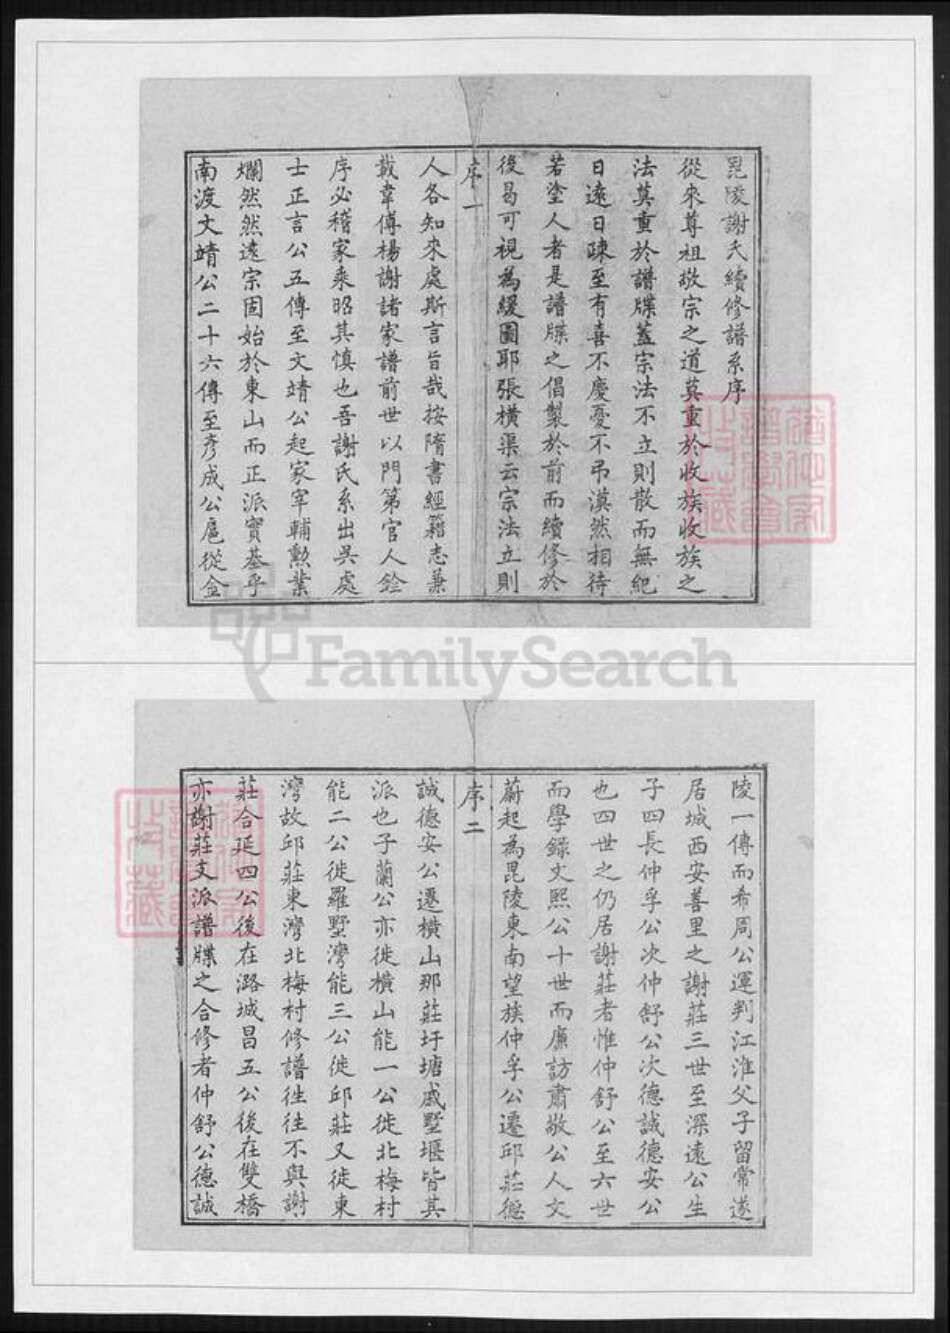 毘陵謝氏續修譜系序
從來尊祖敬宗之道莫重於收族收族之
法莫重於譜牒蓋宗法不立則散而無紀
日遠日疎至有喜不慶憂不弔漠然相待
若塗人者是譜牒之倡製於前而續修於
後曷可視為緩圖耶張橫渠云宗法立則
序一
人各知來處斯言旨哉按隋書經籍志兼
載韋傅楊謝諸家譜前世以門第官人銓
序必稽家乘昭其慎也吾謝氏系出吳處
士正言公五傳至文靖公起家宰輔勲業
爛然然遠宗固始於東山而正派實基乎
南渡文靖公二十六傳至彥成公扈從金
陵一傳而希周公運判江淮父子留常遂
居城西安善里之謝莊三世至深遠公生
子四長仲孚公次仲舒公次德誠德安公
也四世之仍居謝莊者惟仲舒公至六世
而學錄文熙公十世而廉訪肅敬公人文
蔚起為毘陵東南望族仲孚公遷邱莊德
序二
誠德安公遷橫山那莊圩塘戚墅堰皆其
派也子蘭公亦徙橫山能一公徙北梅村
能二公徙羅墅灣能三公徙邱莊又徙東
灣故邱莊東灣北梅村修譜徃徃不與謝
莊合延四公後在潞城昌五公後在雙橋
亦謝莊支派譜牒之合修者仲舒公德誠
FamilySearch